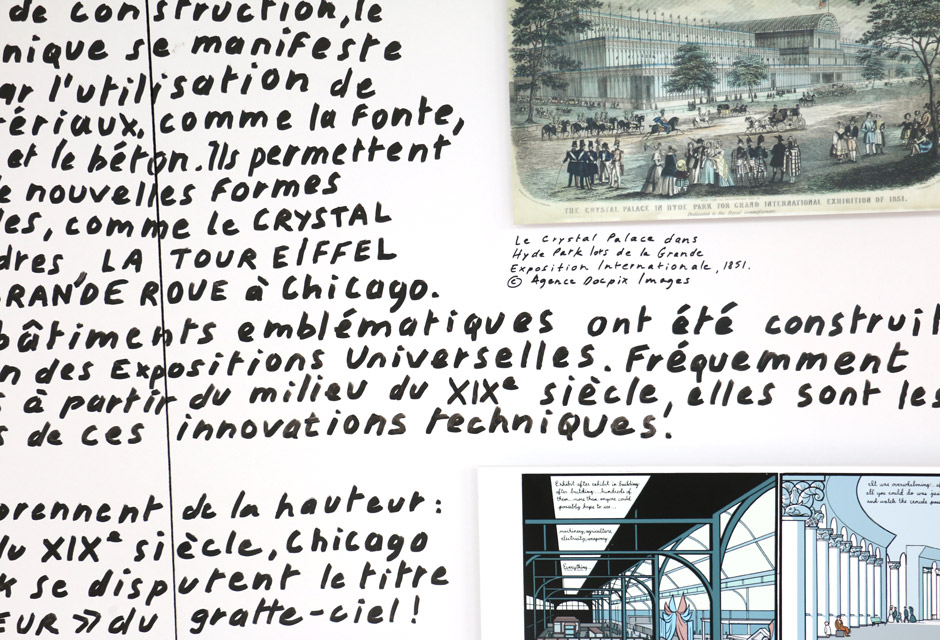 de construction, le
nique se manifeste
ar l'utilisation de
tériaux, comme la fonte,
et le béton. Ils permettent
e nouvelles formes
les, comme le CRYSTAL
dres, LA TOUR EIFFEL
GRANDE ROUE à Chicago.
bâtiments emblématiques ont été construit
n des Expositions Universelles. Fréquemment
s à partir du milieu du XIXe siècle, elles sont les
s de ces innovations techniques.
prennent de la hauteur :
du XIXe siècle, Chicago
k se disputent le titre
EUR » du gratte-ciel !
THE CRYSTAL PALACE IN HYDE PARK FOR GRAND INTERNATIONAL EXHIBITION OF 1851.
Dedicated to the Royal Commissioners.
Le Crystal Palace dans
Hyde Park lors de la Grande
Exposition Internationale, 1851.
© Agence Docpix Images
Exhibit after exhibit in building
after building... hundreds of
them... more than anyone could
possibly hope to see...
machinery, agriculture,
electricity, weaponry
Everything...
It was overwhelming.
all you could do was
and watch the crowds